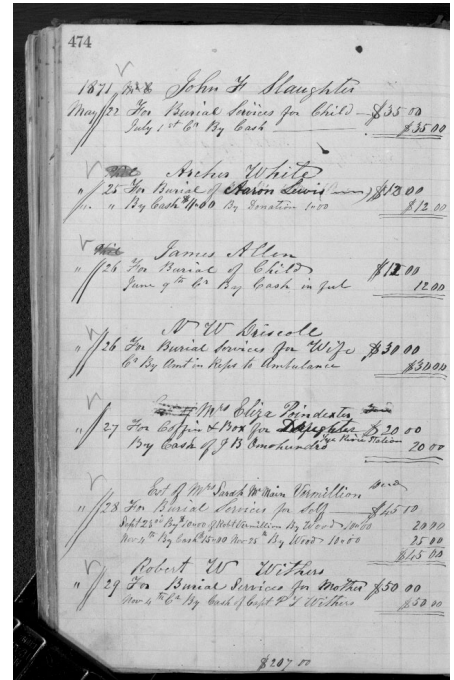 474
1871 John F Slaughter
May 22 For Burial Services for Child $35 00
July 1st Cr By Cash $35 00
Archer White
" 25 For Burial of Aaron Lewis $12 00
" " By Cash $11.00 By Donation 1.00 $12 00
James Allen
" 26 For Burial of Child $12 00
June 9th Cr By Cash in ful 12 00
N W Driscoll
" 26 For Burial Services for Wife $30 00
Cr By Amt in Reps to Ambulance $30 00
Mrs Eliza Poindexter
" 27 For Coffin & Box for Daughter $20 00
Tye River Station
By Cash of J B Omohundro 20 00
Est of Mrs Sarah Mc Main Vermillion
" 28 For Burial Services for Self $45 00
Sept 23rd By 10.00 of Robt Vermillion By Wood 10.00 20 00
Nov 5th By Cash 15.00 Nov 25th By Wood 10.00 25 00
$45 00
Robert W Withers
" 29 For Burial Services for Mother $50.00
Nov 4th Cr By Cash of Capt P T Withers $50 00
$207 00